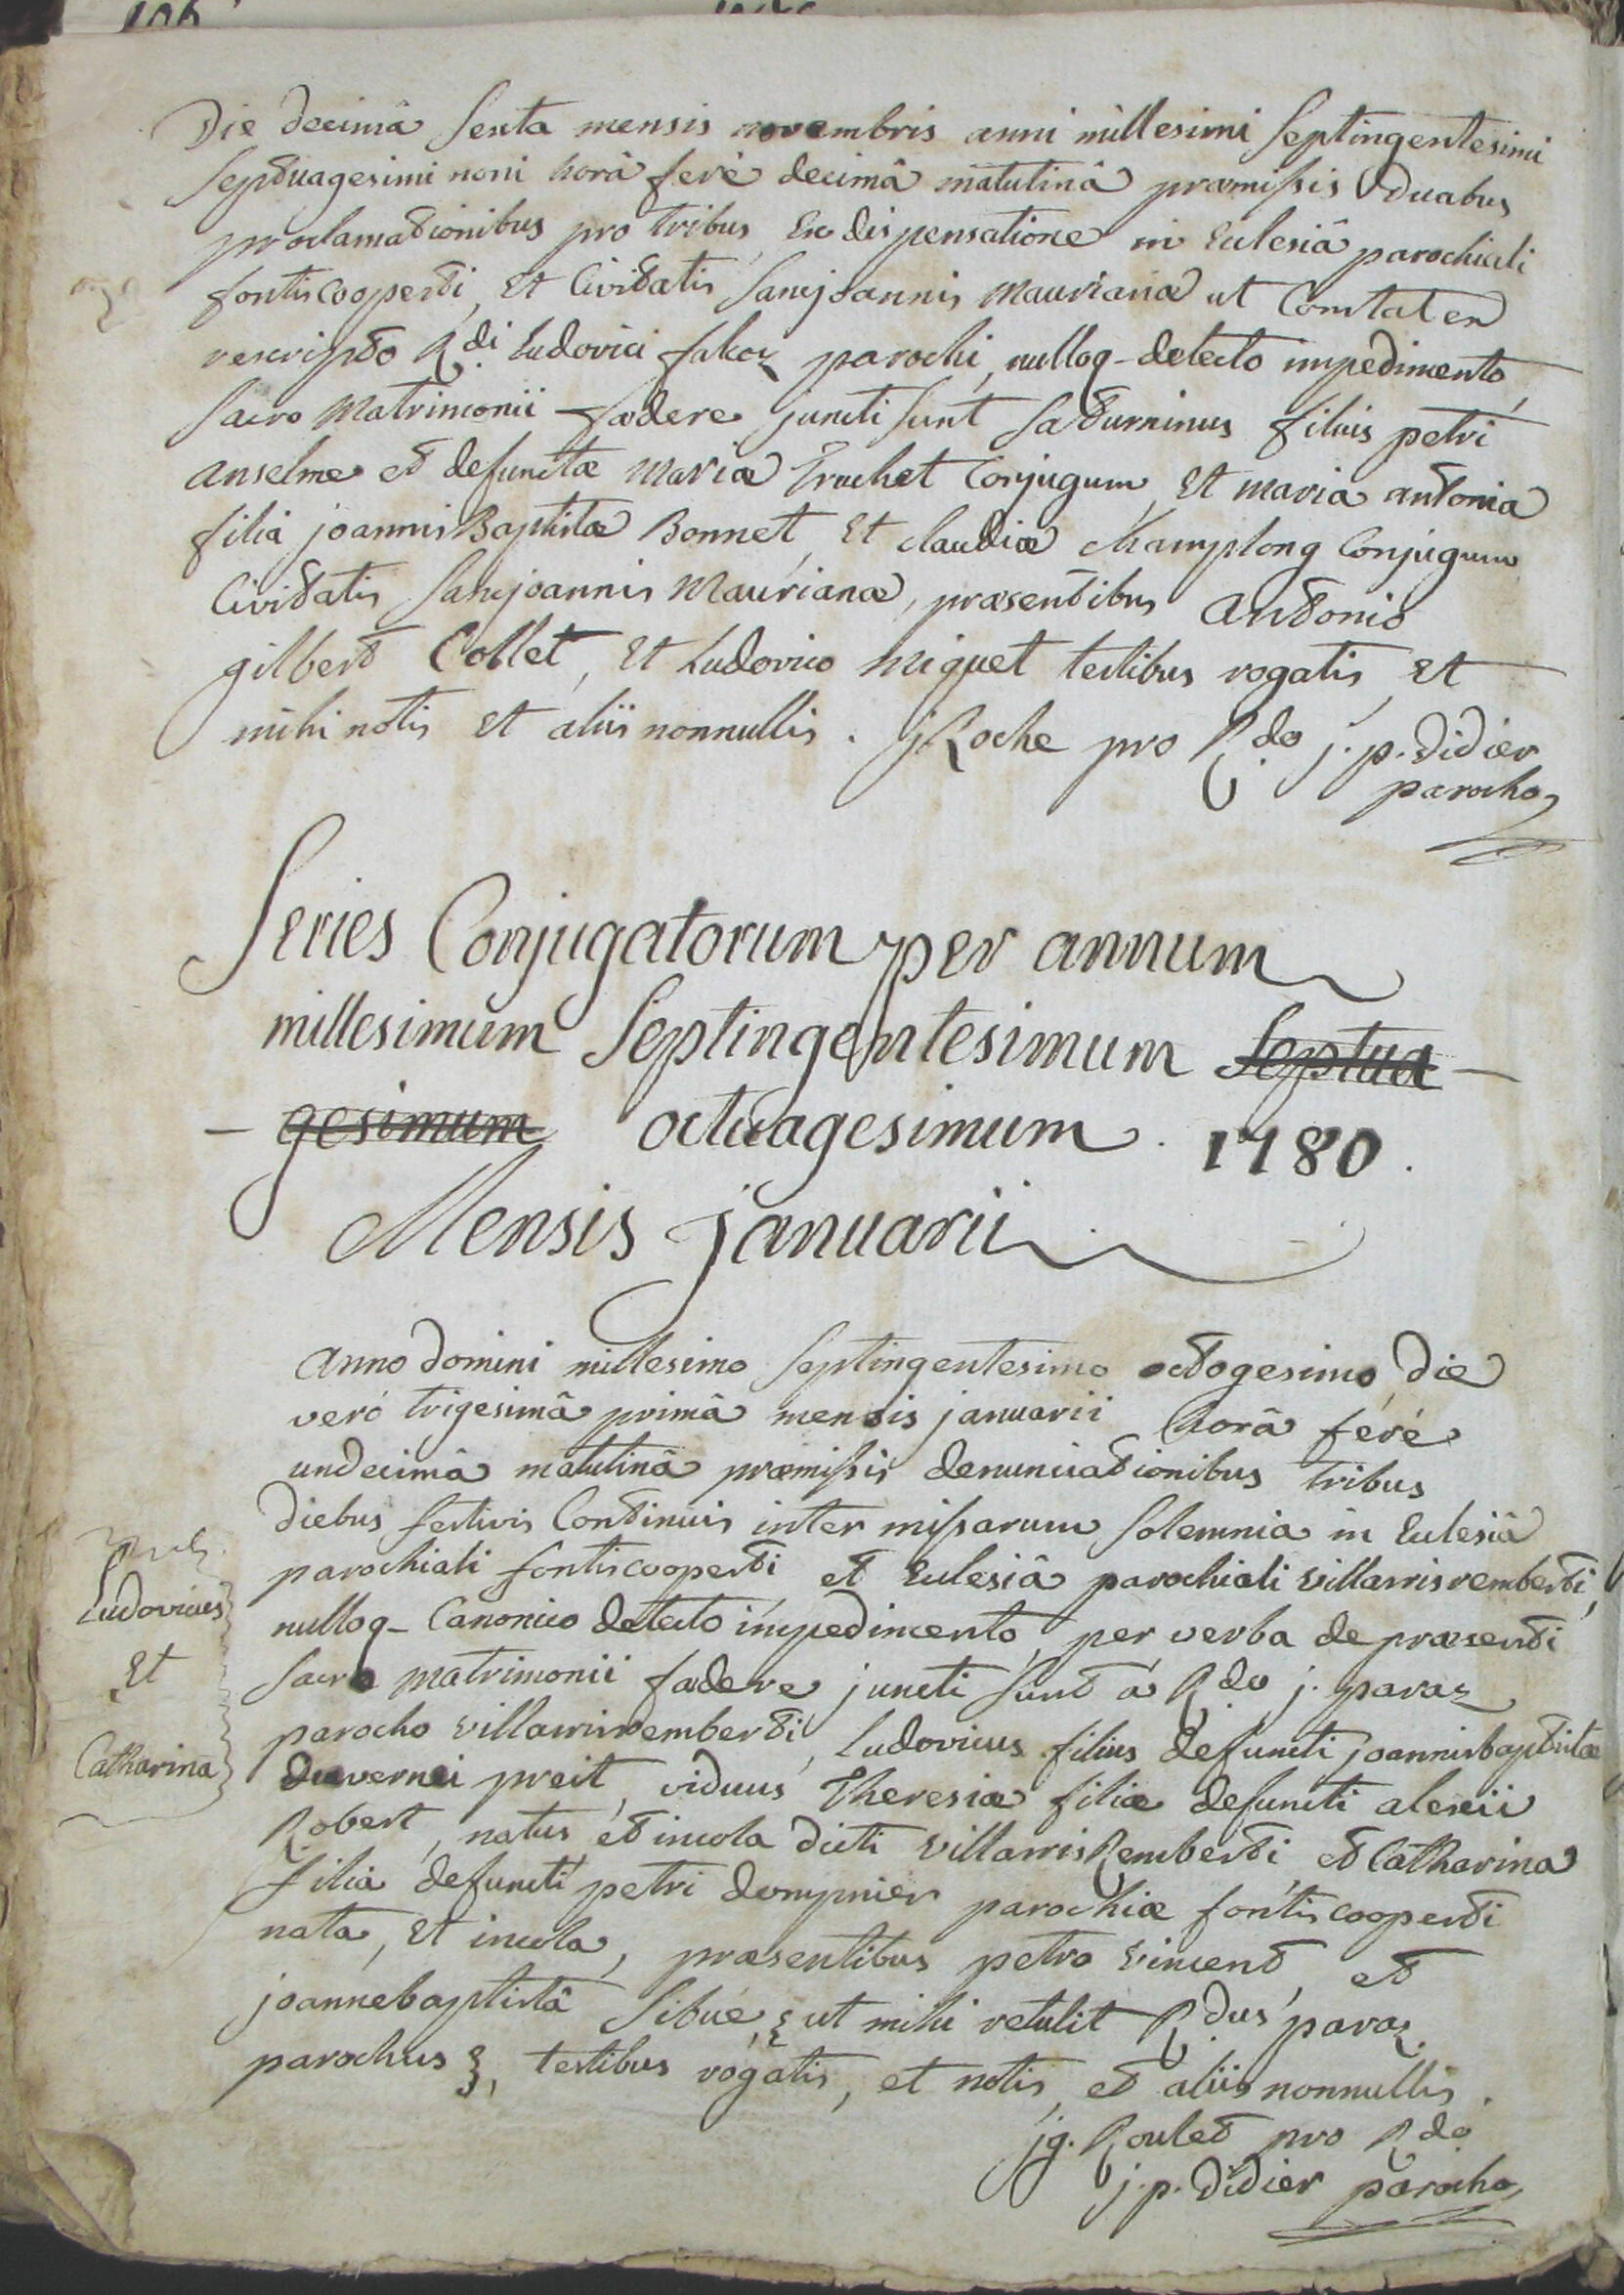 Die decimâ sexta mensis novembris anni millesimi septingentesimi
septuagesimi noni horâ ferè decimâ matutinâ præmissis duabus
proclamationibus pro tribus, Ex dispensatione in Eclesiâ parochiali
fontiscooperti, Et Civitatis Sancjoannis Maurianæ ut Constat ex
rescripto Rdi Ludovici falcoz parochi, nulloq- detecto impedimento,
sacro Matrimonii fædere juncti sunt Saturninus filius petri
anselme et defunctæ Mariæ Truchet Conjugum, Et maria antonia
filia joannisBaptistæ Bonnet, Et claudiæ champlong Conjugum
Civitatis Sancjoannis Maurianæ, præsentibus antonio
gilbert Collet, Et Ludovico miquet testibus rogatis, Et
mihi notis Et aliis nonnullis. jRoche pro Rdo j. p. Didier
parocho
Series Conjugatorum per annum
millesimum Septingentesimum Septua-
-gesimum octuagesimum. 1780.
Mensis januarii
anno Domini millesimo septingentesimo octogesimo, Die
verò trigesimâ primâ mensis januarii horâ férè
undecimâ matutinâ præmissis denunciationibus tribus
Diebus festivis Continuis inter missarum solemnia in Eclesiâ
parochiali fontiscooperti et Eclesiâ parochiali villarrisremberti,
nulloq- Canonico detecto impedimento, per verba de præsenti
sacro matrimonii fædere juncti sunt à Rdo j. paraz
parocho villarrisremberti, Ludovicus filius defuncti joannisbaptistæ
duvernei preit, viduus Theresiæ filiæ defuncti alexii
Robert, natus et incola dicti villarrisRemberti, et Catharina
filia defuncti petri dompnier parochiæ fontiscooperti
nata, Et incola, præsentibus petro vincent, et
joannebaptistâ Sibué, ut mihi retulit Rdus paraz
parochus, testibus rogatis, et notis, et aliis nonnullis.
jg. Roulet pro Rdo
j. p. Didier parocho
Ludovicus
Et
Catharina